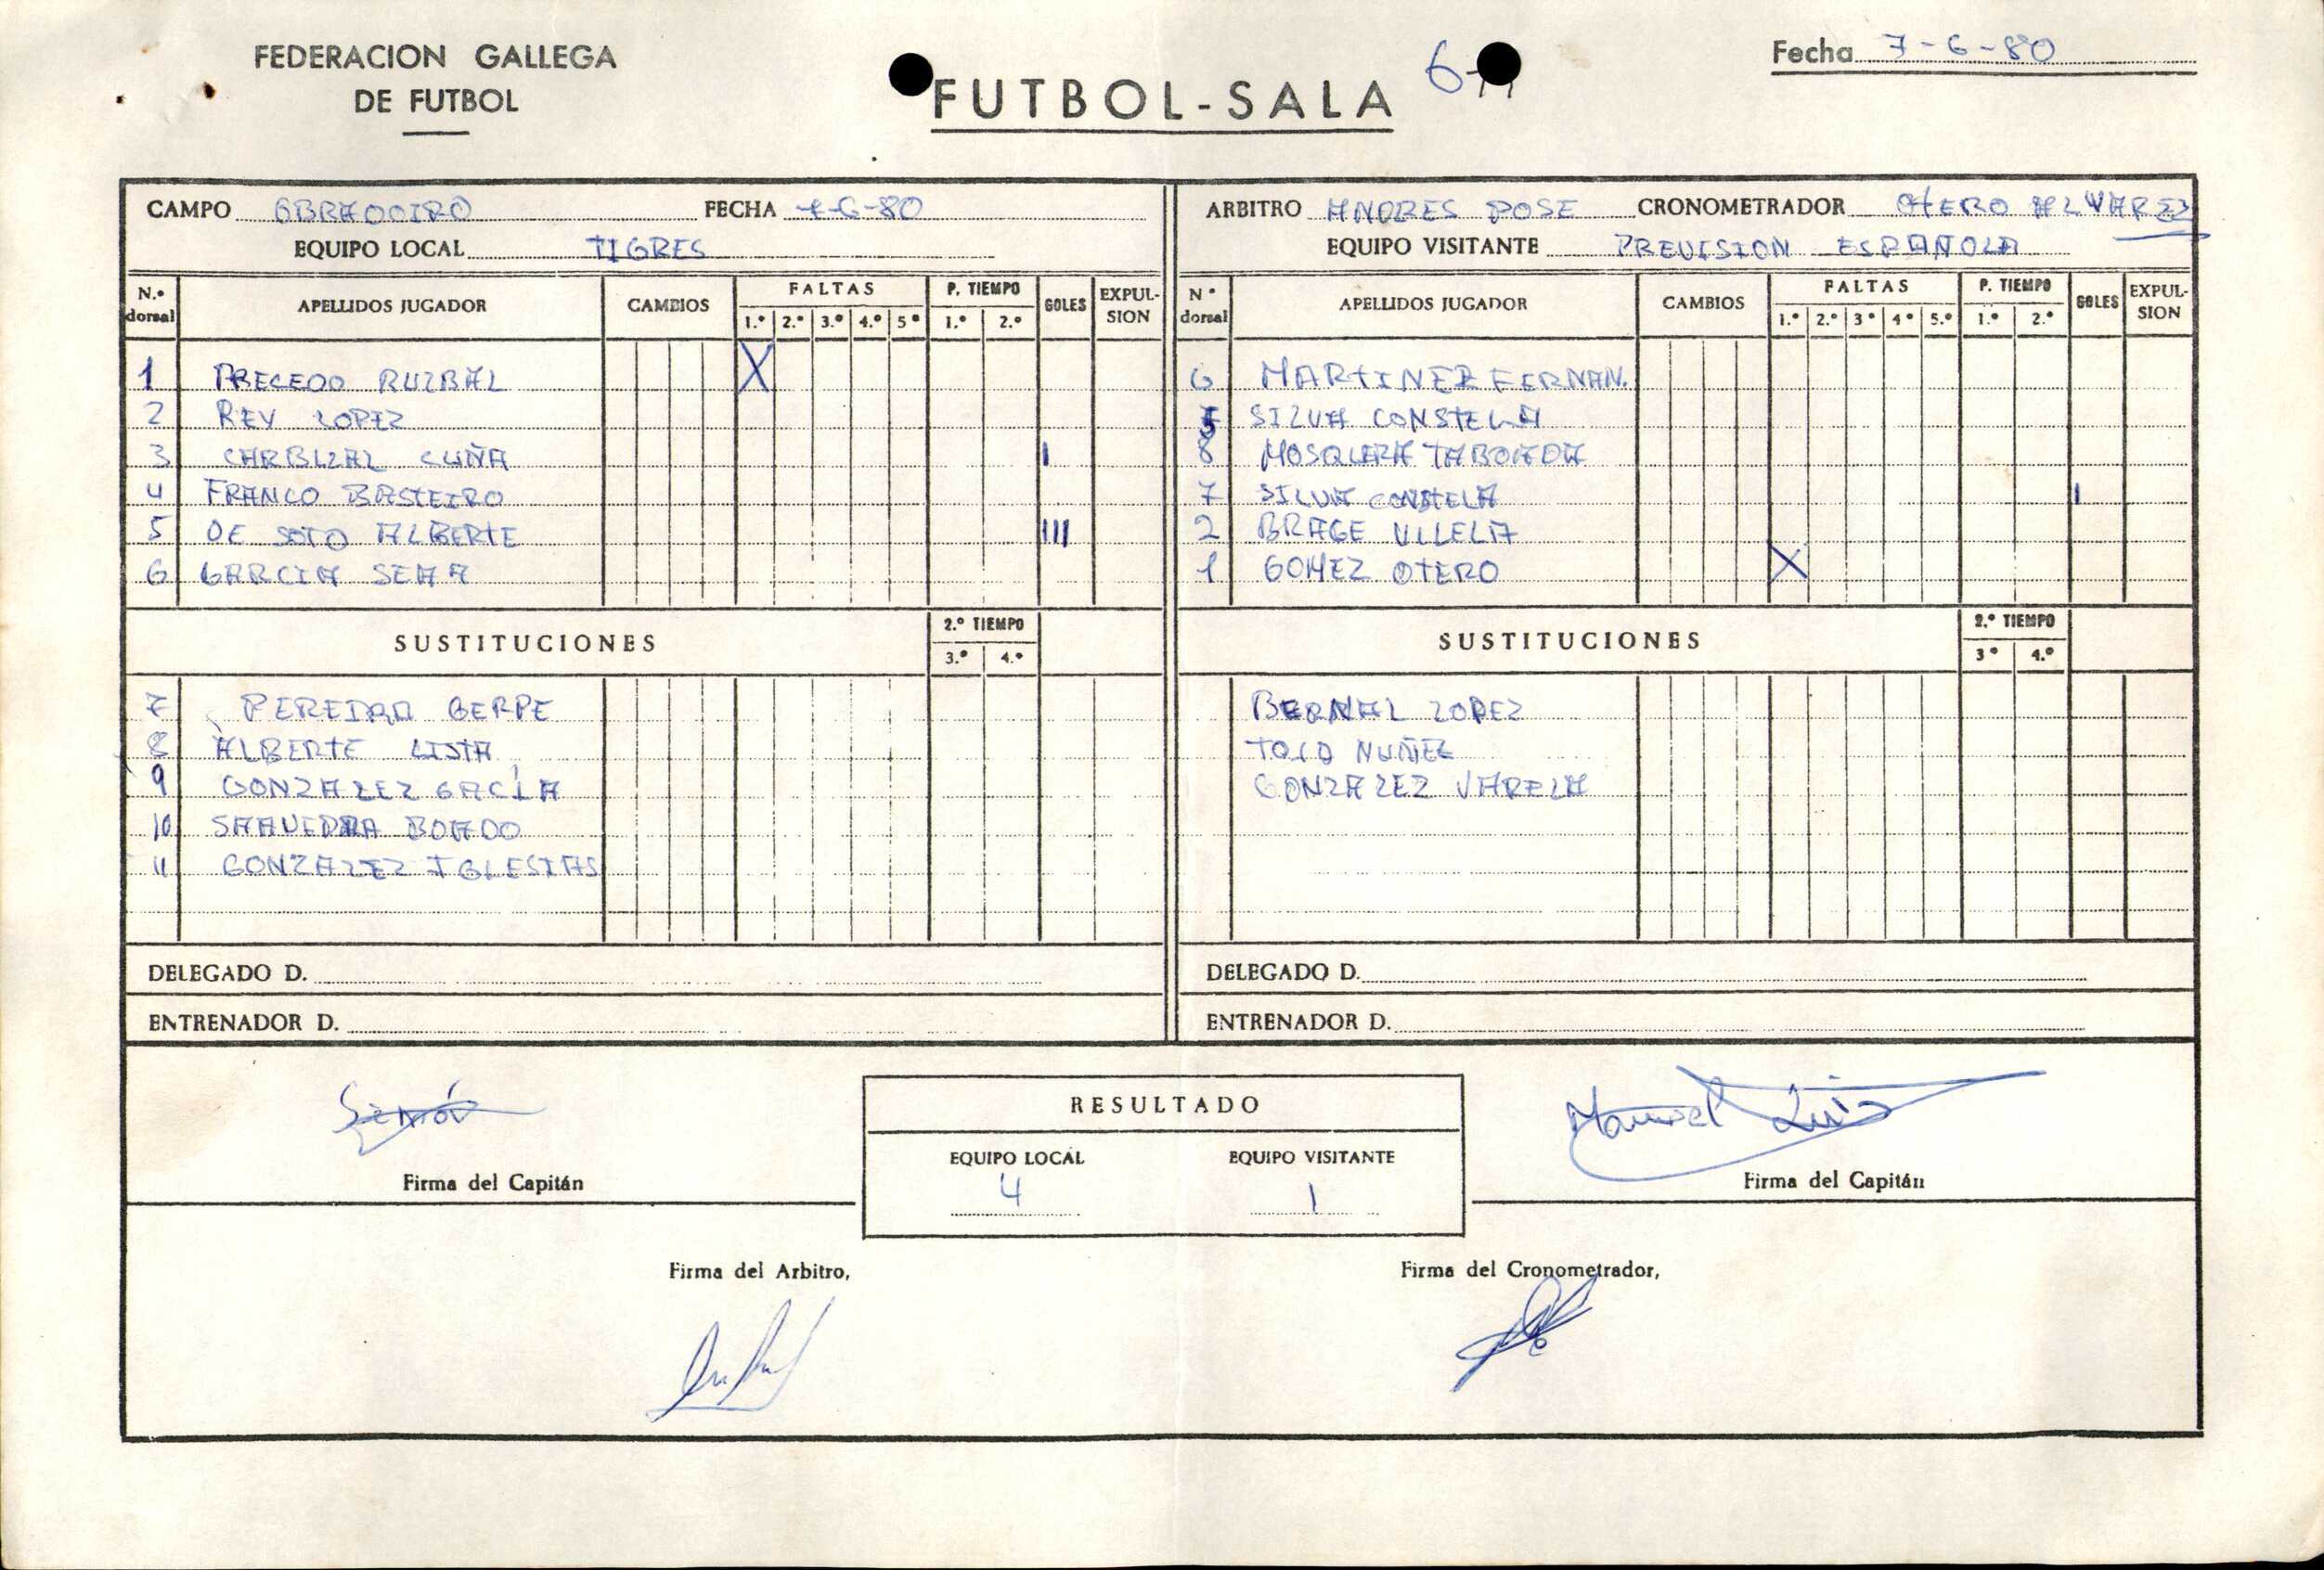 FEDERACION GALLEGA
DE FUTBOL
FUTBOL-SALA
6
Fecha 7-6-80
CAMPO OBRADOIRO FECHA 7-6-80
EQUIPO LOCAL TIGRES
ARBITRO ANDRES POSE CRONOMETRADOR OTERO ALVAREZ
EQUIPO VISITANTE PREVISION ESPAÑOLA
N.º dorsal APELLIDOS JUGADOR CAMBIOS FALTAS 1.º 2.º 3.º 4.º 5º P. TIEMPO 1.º 2.º GOLES EXPUL-SION
1 PRECEDO RUIBAL X
2 REY LOPEZ
3 CARBIZAL CUÑA I
4 FRANCO BASTEIRO
5 DE SOTO ALBERTE III
6 GARCIA SEAA
SUSTITUCIONES 2.º TIEMPO 3.º 4.º
7 PEREIRA GERPE
8 ALBERTE LISTA
9 GONZALEZ GACÍA
10 SAAVEDRA BOADO
11 GONZALEZ IGLESIAS
DELEGADO D.
ENTRENADOR D.
Nº dorsal APELLIDOS JUGADOR CAMBIOS FALTAS 1.º 2.º 3º 4º 5.º P. TIEMPO 1.º 2.º GOLES EXPUL-SION
6 MARTINEZ FERNAN.
5 SILVA CONSTELA
8 MOSQUERA TABOADA
7 SILVA CONSTELA I
2 BRAGE VILELA
1 GOMEZ OTERO X
SUSTITUCIONES 2.º TIEMPO 3º 4.º
BERNAL LOPEZ
TOJO NUÑEZ
GONZALEZ VARELA
DELEGADO D.
ENTRENADOR D.
Simón
Firma del Capitán
RESULTADO
EQUIPO LOCAL EQUIPO VISITANTE
4 1
Manuel Luis
Firma del Capitán
Firma del Arbitro,
Firma del Cronometrador,